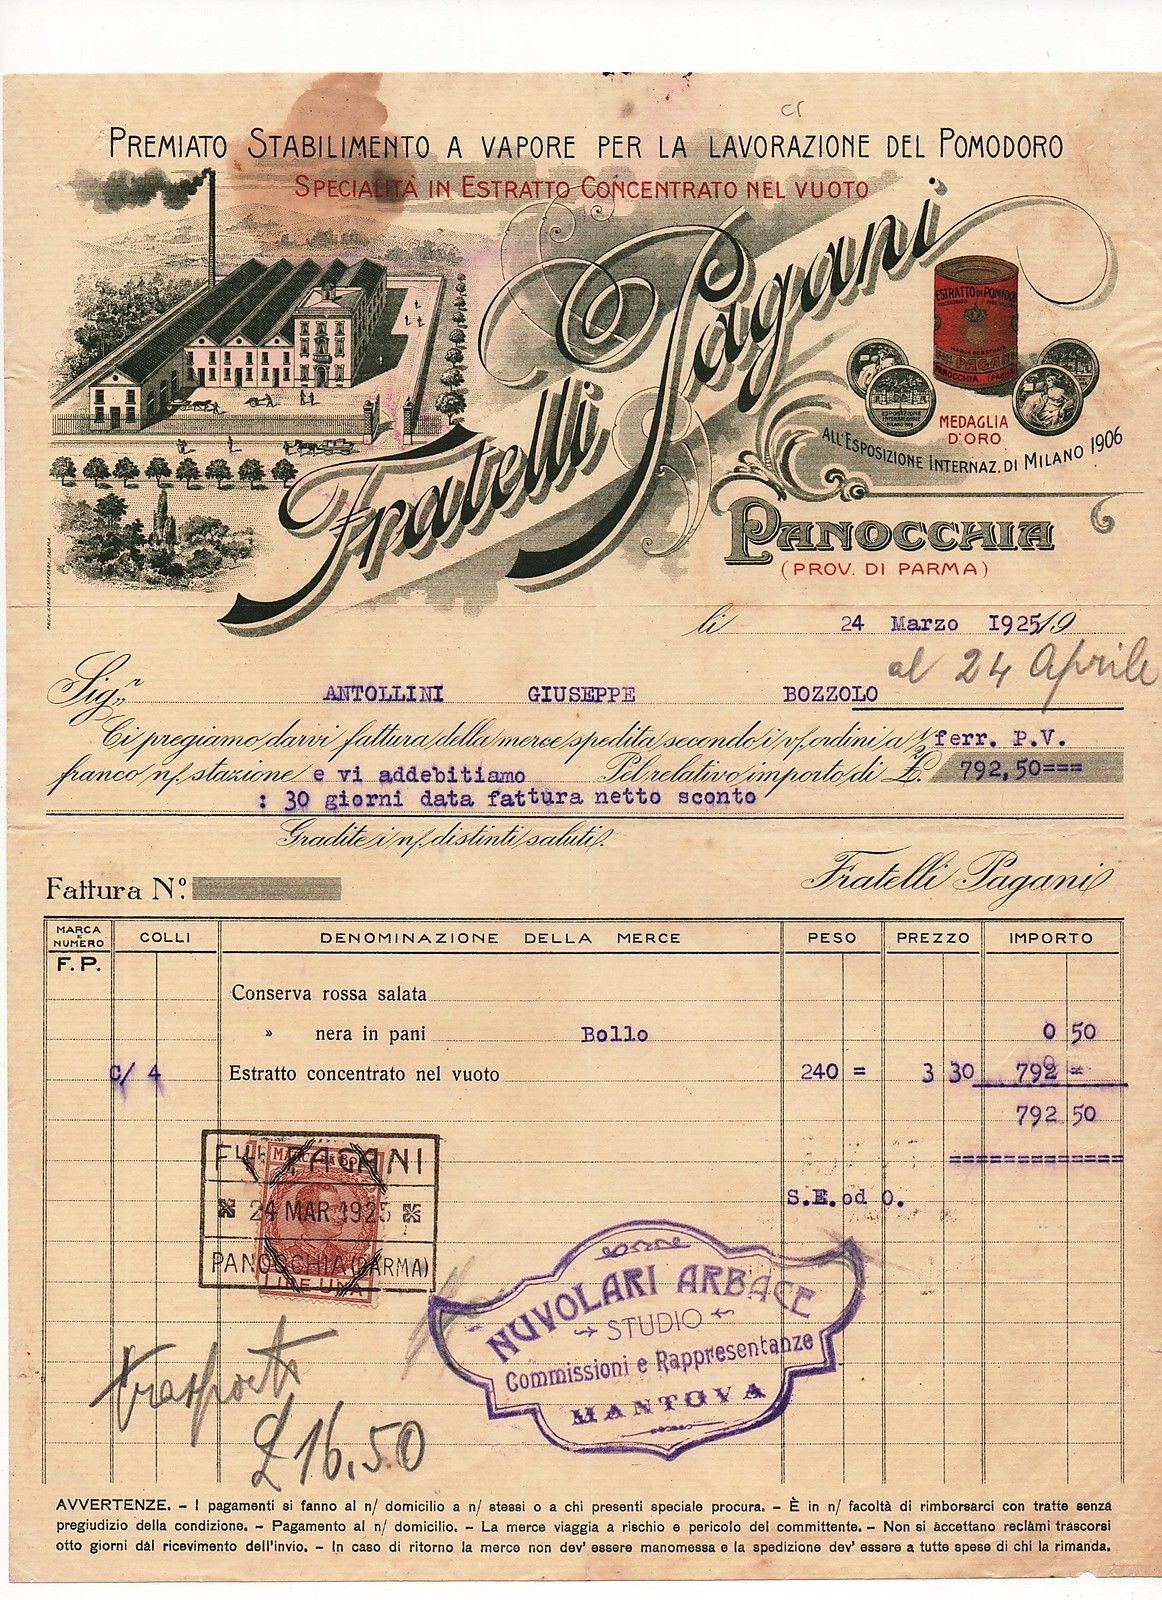 PREMIATO STABILIMENTO A VAPORE PER LA LAVORAZIONE DEL POMODORO
SPECIALITÀ IN ESTRATTO CONCENTRATO NEL VUOTO
Fratelli Pagani
ESTRATTO DI POMODO
PAGANI
PANOCCHIA (PARMA)
ESPOSIZIONE INTERNAZIONALE MILANO 1906
MEDAGLIA D'ORO
ALL'ESPOSIZIONE INTERNAZ. DI MILANO 1906
PANOCCHIA
(PROV. DI PARMA)
li 24 Marzo 1925/19
al 24 Aprile
Sig.r ANTOLLINI GIUSEPPE BOZZOLO
Ci pregiamo darvi fattura della merce spedita secondo i v/. ordini a 1/2 ferr. P.V.
franco n/. stazione e vi addebitiamo Pel relativo importo di £. 792,50===
: 30 giorni data fattura netto sconto
Gradite i n/. distinti saluti.
Fratelli Pagani
Fattura N.o
MARCA E NUMERO COLLI DENOMINAZIONE DELLA MERCE PESO PREZZO IMPORTO
F.P.
Conserva rossa salata
» nera in pani Bollo 0 50
C/ 4 Estratto concentrato nel vuoto 240 = 3 30 792 =
792 50
=============
S.E. od O.
F.LLI PAGANI
24 MAR 1925
PANOCCHIA (PARMA)
LIRE UNA
NUVOLARI ARBACE
STUDIO
Commissioni e Rappresentanze
MANTOVA
trasporto
£ 16,50
AVVERTENZE. – I pagamenti si fanno al n/ domicilio a n/ stessi o a chi presenti speciale procura. – È in n/ facoltà di rimborsarci con tratte senza
pregiudizio della condizione. – Pagamento al n/ domicilio. – La merce viaggia a rischio e pericolo del committente. – Non si accettano reclami trascorsi
otto giorni dal ricevimento dell'invio. – In caso di ritorno la merce non dev' essere manomessa e la spedizione dev' essere a tutte spese di chi la rimanda.